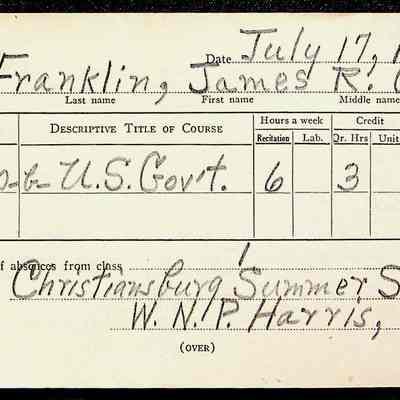 Date July 17, 1
Franklin, James R.
Last name First name Middle name
DESCRIPTIVE TITLE OF COURSE Hours a week Credit
Recitation Lab. Qr. Hrs Unit
-6- U.S. Gov't. 6 3
f absences from class 1
Christiansburg Summer S
W. N. P. Harris,
(OVER)